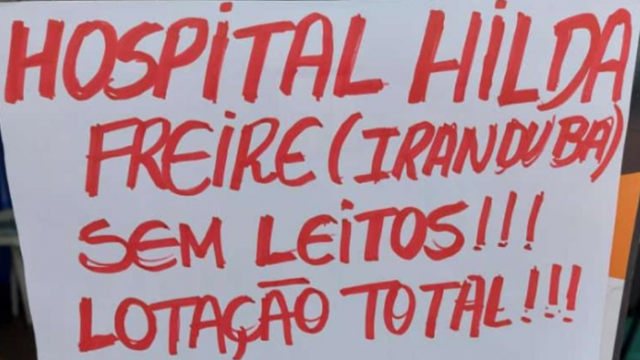 HOSPITAL HILDA
FREIRE (IRANDUBA)
SEM LEITOS!!!
LOTAÇÃO TOTAL!!!